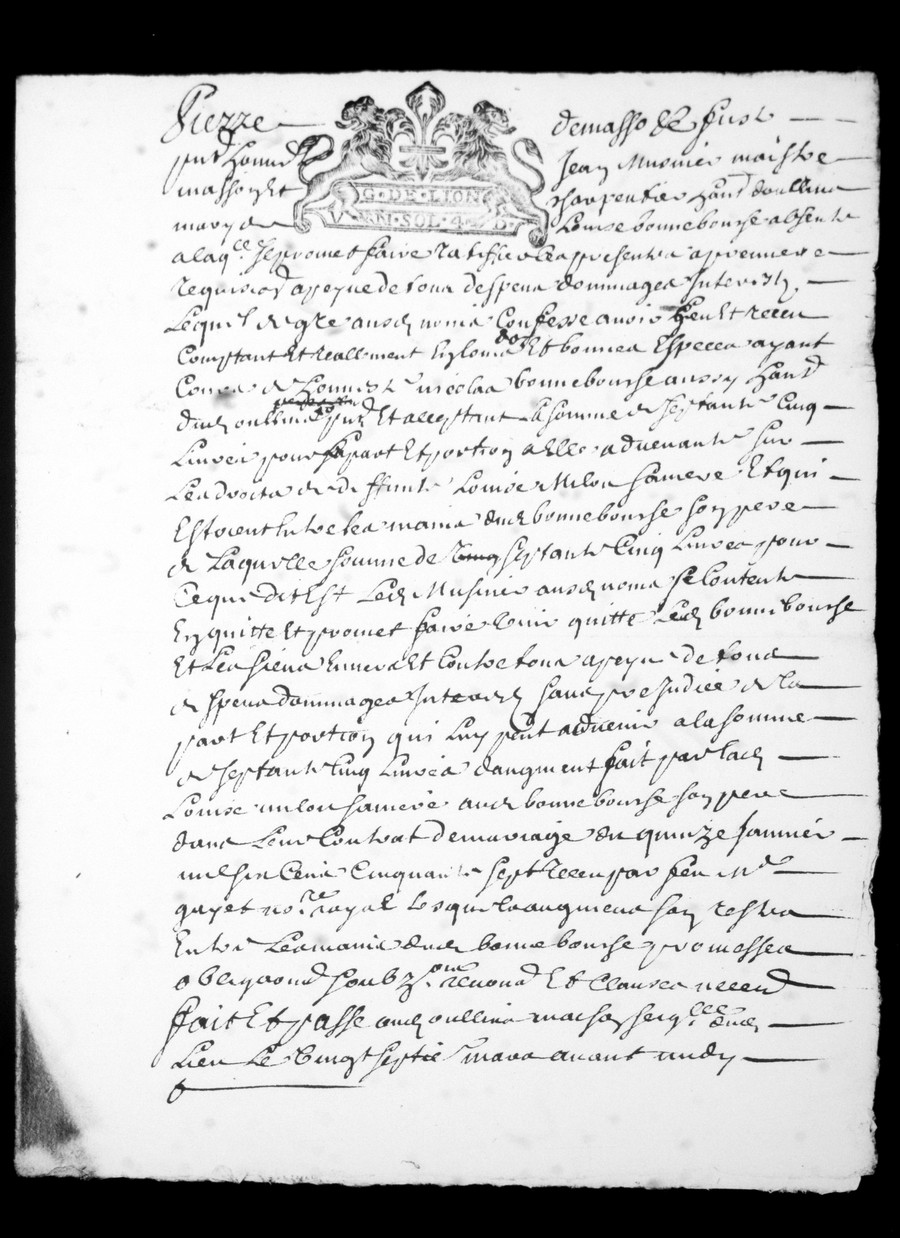 Pierre demasso &c fust
put honn Jean Musnier maistre
masson et charpentier hant doullins
mary de Louise bonnebourse absente
a laq.lle Il promet faire ratiffier les presentes a premiere
G. DE LION
VN SOL 4 D.
requis.on a peyne de tous despens dommages Interestz
Lequel de gre ausd noms Confesse avoir heu Et receu
Comptant Et reallement En louis d'or Et bonnes Especes ayant
Cours de honneste nicolas bonnebourse aussy hant
dud oullins put Et acceptant La somme de septante Cinq
Livres pour sa part Et portion a Elle advenante sur
Les droits de deffunte Louise Milon sa mere Et qui
Estoient Entre les mains dud bonnebourse son pere
de Laquelle somme de septante Cinq Livres pour
Ce que dit Est Led Musnier ausd noms se Contente
En quitte Et promet faire tenir quitte Led bonnebourse
Et Les siens Envers Et Contre tous a peyne de tous
despens dommages Interestz sans prejudice de la
part Et portion qui Luy peut advenir a la somme
de septante Cinq Livres d'augment fait par lad
Louise milon sa mere aud bonnebourse son pere
dans Leur Contrat de mariage du quinze Janvier
mil six Cens Cinquante sept receu par feu M.e
guyet no.re royal Lesquels augmens son restes
Entre Les mains dud bonnebourse promesses
obligaons soubz.ons renonc Et Clauses necess
fait Et passe aud oullins maison seig.lle dud
Lieu Le vingt septie mars avant midy